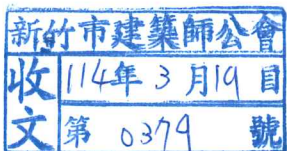 新竹市建築師公會
收文
114年3月19日
第 0379 號